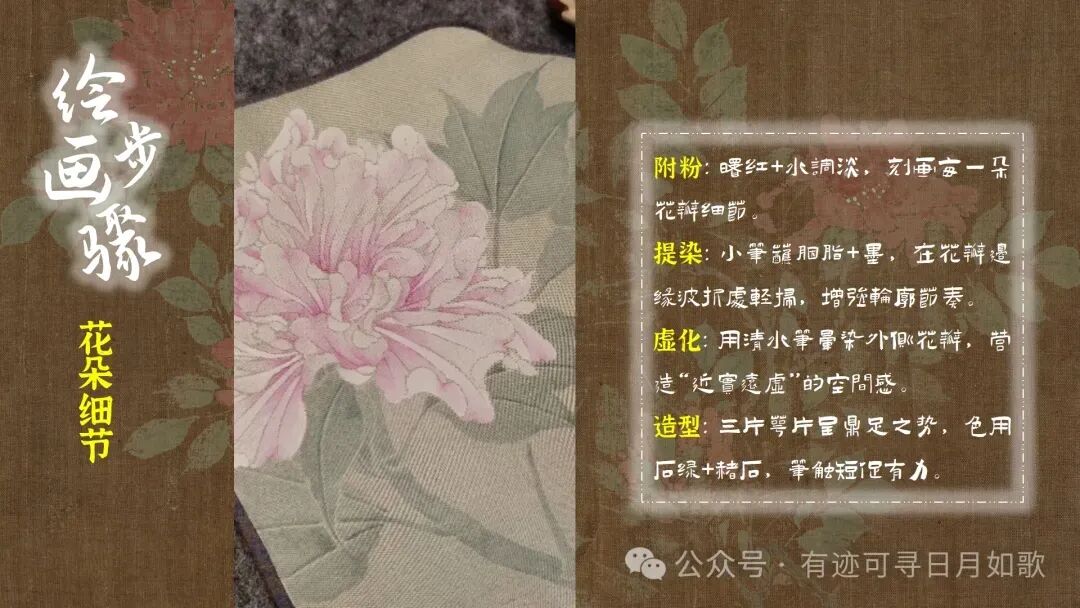 绘画步骤
花朵细节
附粉: 曙红+水調淡，刻画每一朵
花瓣细節。
提染: 小筆蘸胭脂+墨，在花瓣邊
緣波折處輕掃，增強輪廓節奏。
虚化: 用清水筆暈染外側花瓣，营
造“近實遠虛”的空間感。
造型: 三片萼片呈鼎足之势，色用
石绿+赭石，筆触短促有力。
公众号 · 有迹可寻日月如歌